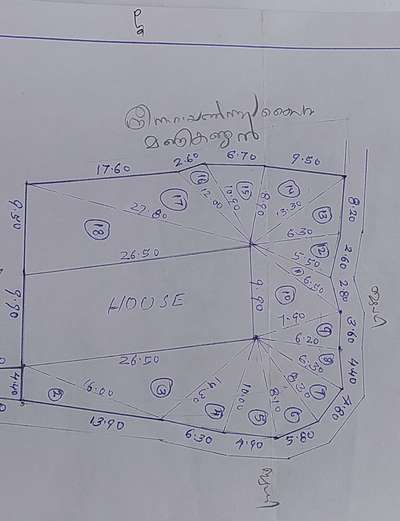 മണികണ്ഠൻ
17.60
2.60
6.70
9.50
9.50
27.80
17
16
12.80
10.90
15
8.90
14
13.30
13
8.20
18
6.30
12
2.60
26.50
5.50
11
6.50
2.80
9.90
HOUSE
9.90
10
7.90
9
3.60
6.20
26.50
6.30
8
4.40
4.40
16.00
3
14.30
10.00
8.10
8.30
7
4.80
2
4
5
6
13.90
6.30
4.90
5.80